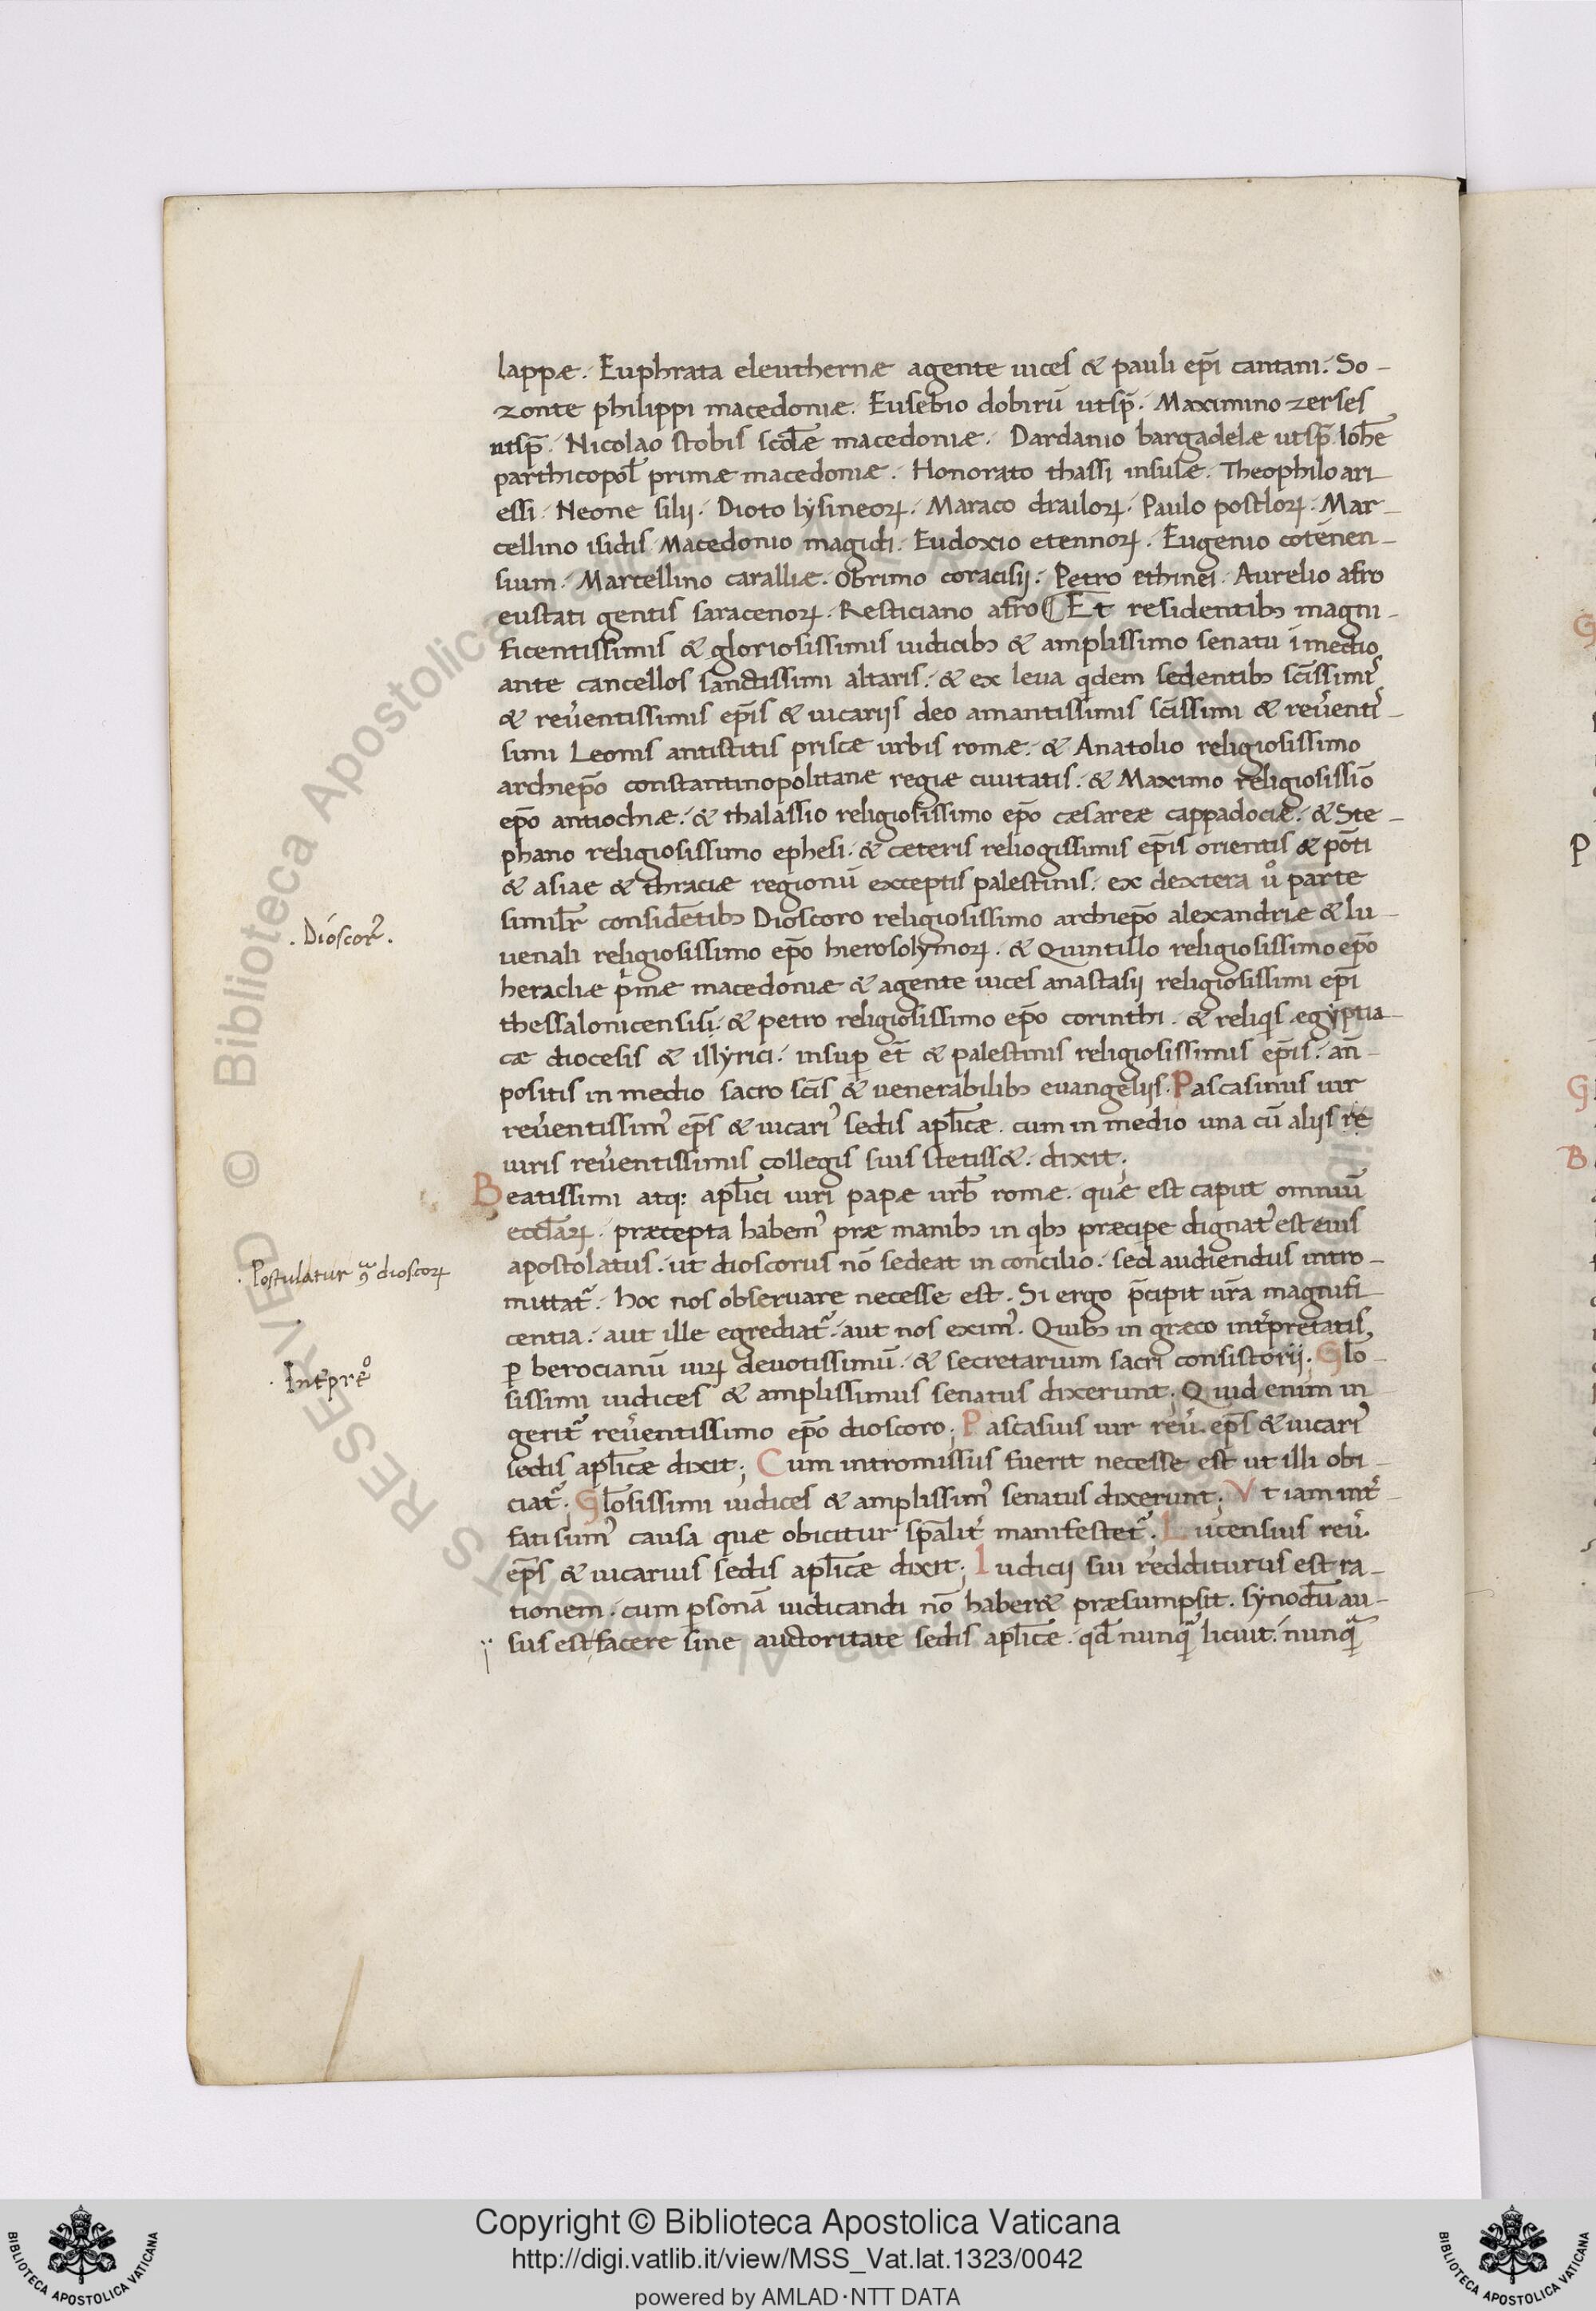 lappæ. Euphrata eleuthernæ agente uices & pauli ep̄i cantani. So-
zonte philippi macedoniæ. Eusebio dobirū utsp̄. Maximino zerses
utsp̄. Nicolao stobis scd̄æ macedoniæ. Dardanio bargadelæ utsp̄. Ioh̄e
parthicopol̄ primæ macedoniæ. Honorato thassi insulæ. Theophilo ari
essi. Neone silij. Dioto lysineoꝝ. Maraco drailoꝝ. Paulo postloꝝ. Mar-
cellino isidis Macedonio magidi. Eudoxio etennoꝝ. Eugenio cotenen-
sium. Marcellino caralliæ. Obrimo coracisij. Petro ethinei. Aurelio afro
eustati gentis saracenoꝝ. Resticiano afro ⸿ Et residentibꝫ magni-
ficentissimis & gloriosissimis iudicibꝫ & amplissimo senatu ī medio
ante cancellos sanctissimi altaris. & ex leua qͥdem sedentibꝫ sc̄issimiꝰ
& reu͛entissimis ep̄is & uicarijs deo amantissimis sc̄issimi & reu͛enti-
simi Leonis antistitis priscæ urbis romæ. & Anatolio religiosissimo
archiep̄o constantinopolitanæ regiæ ciuitatis. & Maximo religiosissiō
ep̄o antiochiæ. & thalassio religiosissimo ep̄o cæsareæ cappadociæ. & Ste-
phano religiosissimo ephesi. & cæteris reliogissimis ep̄is orientis & pōti
& asiae & thraciæ regionū exceptis palestinis. ex dextera uͦ parte
simil̄r consid̄etibꝫ Dioscoro religiosissimo archiep̄o alexandriæ & Iu-
uenali religiosissimo ep̄o hierosolymoꝝ. & Quintillo religiosissimo ep̄o
heracliæ pͥmæ macedoniæ & agente uices anastasij religiosissimi ep̄i
thessalonicensis. & petro religiosissimo ep̄o corinthi. & reliqͥs ægyptia-
cæ diocesis & illyrici. insuꝑ et̄ & palestinis religiosissimis ep̄is. an̄-
positis in medio sacro sc̄is & uenerabilibꝫ euangelijs. Pascasinus uir
reu͛entissimꝰ ep̄s & uicariꝰ sedis apl̄icæ. cum in medio una cū alijs re
uiris reu͛entissimis collegis suis stetiss&. dixit.
Beatissimi atq: apl̄ici uiri papæ urb̄ romæ. quæ est caput omniū
eccl̄aꝝ. præcepta habemꝰ præ manibꝫ in qͥbꝫ præcipe dignatꝰ est eius
apostolatus. ut dioscorus nō sedeat in concilio. sed audiendus intro-
mittat᷑. hoc nos obseruare necesse est. Si ergo p̄cipit ur̄a magnifi
centia. aut ille egrediat᷑. aut nos eximꝰ. Quibꝫ in græco int͛pretatis,
ꝑ berocianū uiꝝ deuotissimū. & secretarium sacri consistorij. Glo-
sissimi iudices & amplissimus senatus dixerunt; Quid enim in
gerit᷑ reu͛entissimo ep̄o dioscoro; Pascasius uir reu͛. ep̄s & uicariꝰ
sedis apl̄icæ dixit; Cum intromissus fuerit necesse est ut illi obi-
ciat᷑; Gl̄osissimi iudices & amplissimꝰ senatus dixerunt; Vt iam int͛-
fati sumꝰ causa quæ obicitur sp̄alit͛ manifestet᷑. Lucensius reu͛.
ep̄s & uicarius sedis apl̄icæ dixit; Iudicij sui redditurus est ra-
tionem. cum ꝑsonā iudicandi nō haber& præsumpsit. synodū au-
sus est facere sine auctoritate sedis apl̄icæ. qd̄ nunqͣ licuit. nunqͣ
. Dioscorꝰ.
. Postulatur ꝯͣ dioscoꝝ
. Int̄preͦ
Copyright © Biblioteca Apostolica Vaticana
http://digi.vatlib.it/view/MSS_Vat.lat.1323/0042
powered by AMLAD·NTT DATA
BIBLIOTECA APOSTOLICA VATICANA
BIBLIOTECA APOSTOLICA VATICANA